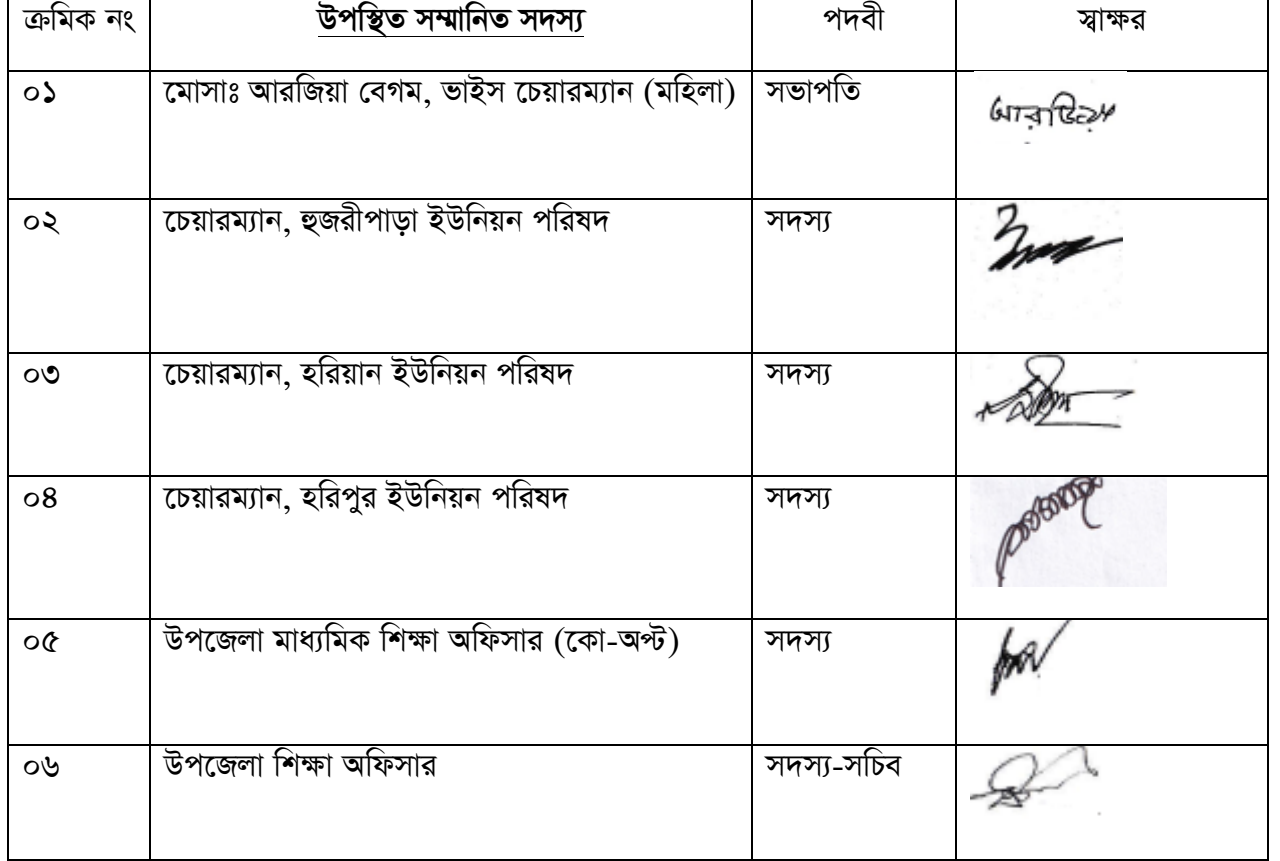 ক্রমিক নং উপস্থিত সম্মানিত সদস্য পদবী স্বাক্ষর
০১ মোসাঃ আরজিয়া বেগম, ভাইস চেয়ারম্যান (মহিলা) সভাপতি আরজিয়া
০২ চেয়ারম্যান, হুজরীপাড়া ইউনিয়ন পরিষদ সদস্য
০৩ চেয়ারম্যান, হরিয়ান ইউনিয়ন পরিষদ সদস্য
০৪ চেয়ারম্যান, হরিপুর ইউনিয়ন পরিষদ সদস্য
০৫ উপজেলা মাধ্যমিক শিক্ষা অফিসার (কো-অপ্ট) সদস্য
০৬ উপজেলা শিক্ষা অফিসার সদস্য-সচিব